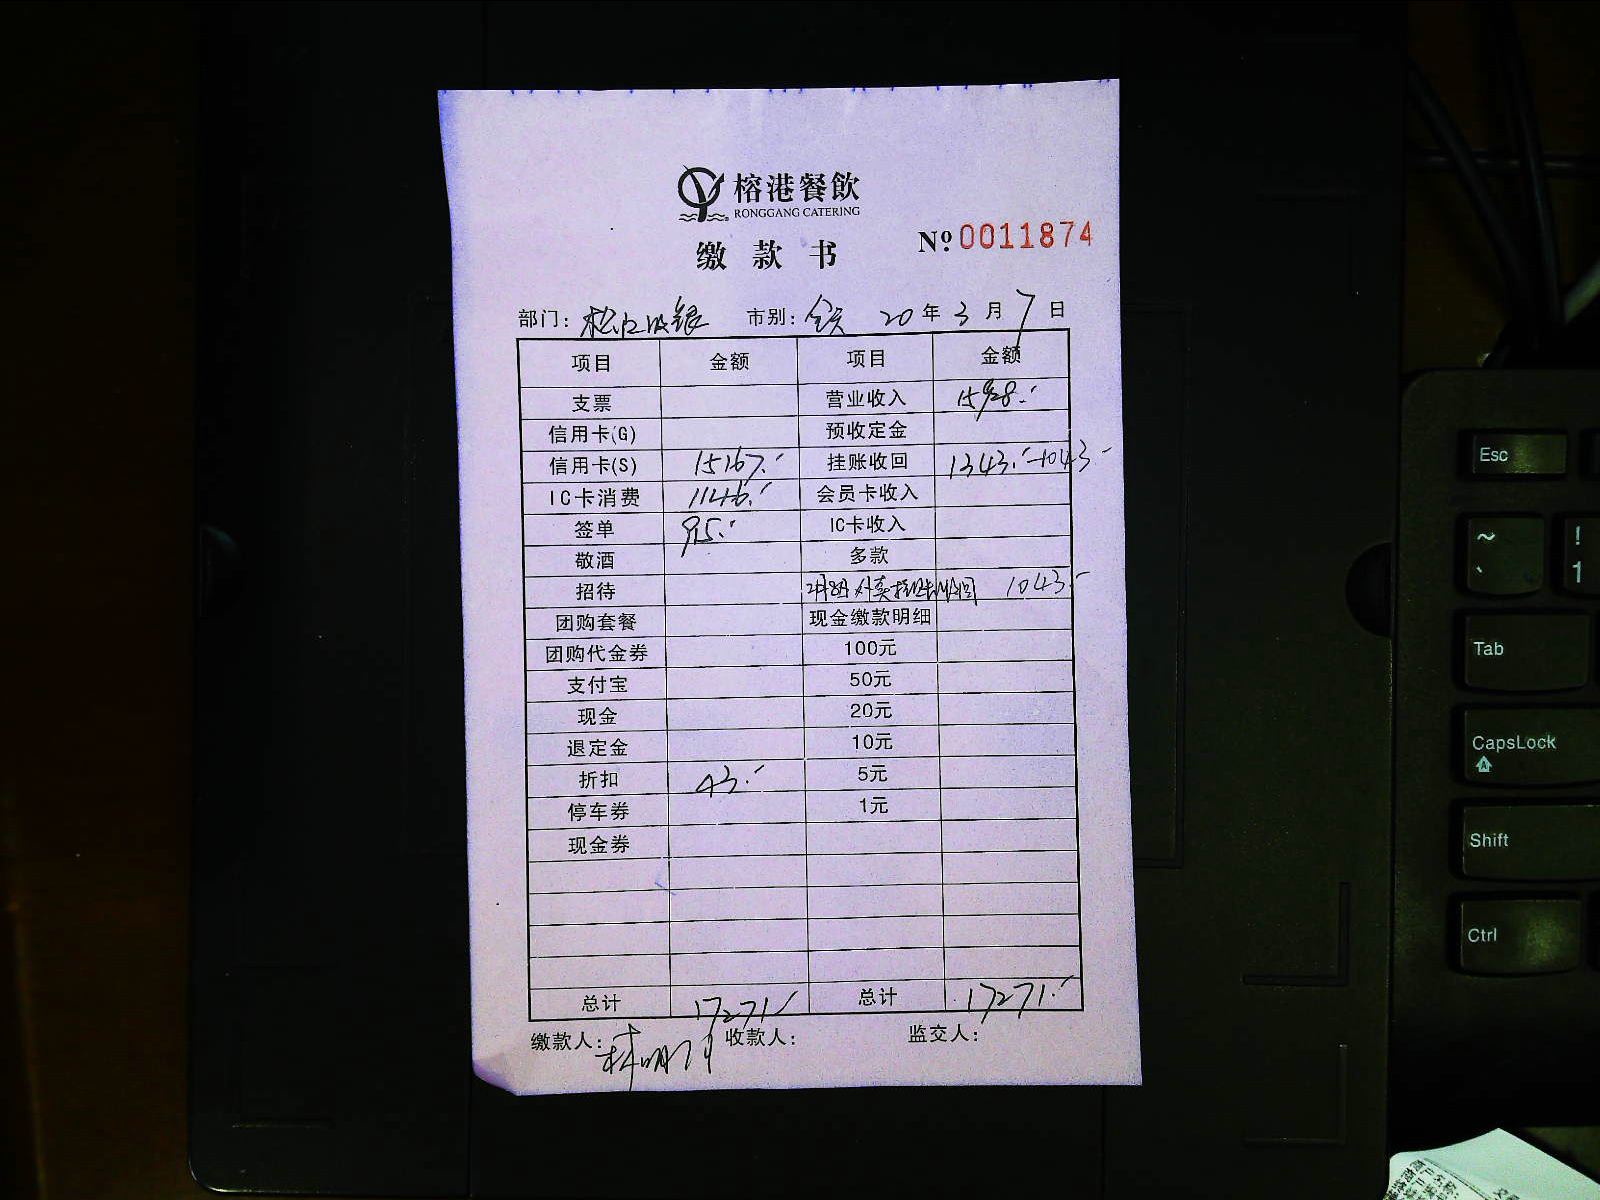 榕港餐飲
RONGGANG CATERING
缴款书 Nº 0011874
部门: 松江收银 市别: 全天 20年3月7日
项目 金额 项目 金额
支票 营业收入 15928.-
信用卡(G) 预收定金
信用卡(S) 15167.- 挂账收回 1343.- -1043-
IC卡消费 1146.- 会员卡收入
签单 915.- IC卡收入
敬酒 多款
招待 2月8日外卖 收回 1043.-
团购套餐 现金缴款明细
团购代金券 100元
支付宝 50元
现金 20元
退定金 10元
折扣 43.- 5元
停车券 1元
现金券
总计 17271.- 总计 17271.-
缴款人: 林明 收款人: 监交人:
Esc
~ !
1
Tab
CapsLock
Shift
Ctrl